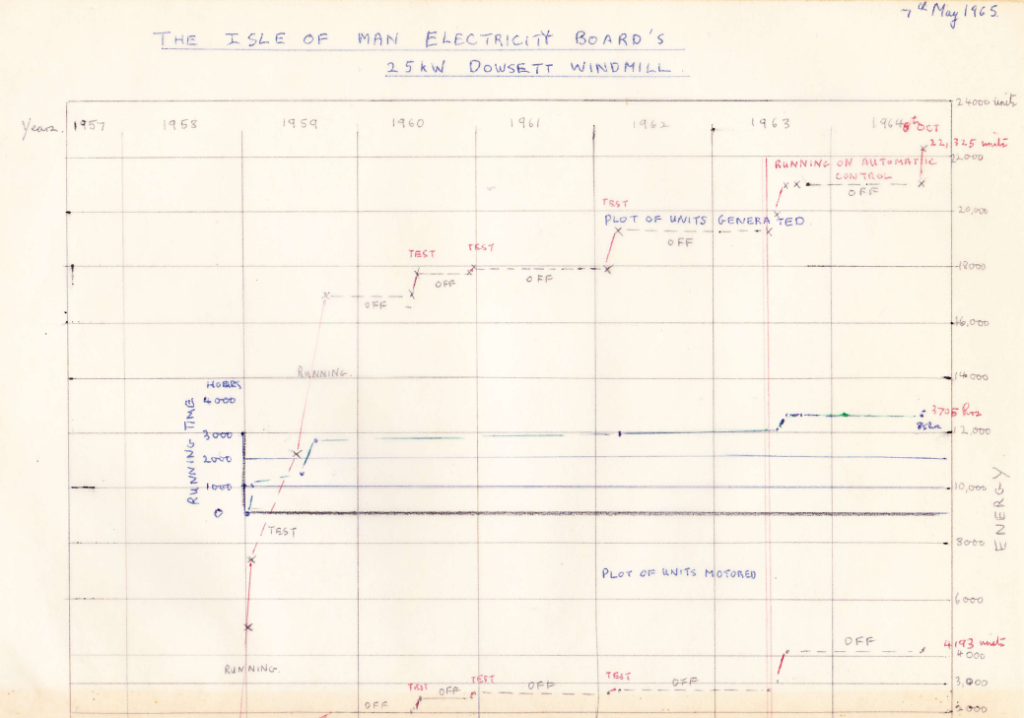 7th May 1965
THE ISLE OF MAN ELECTRICITY BOARD'S
25 kW DOWSETT WINDMILL.
24000 units
Years. 1957 1958 1959 1960 1961 1962 1963 1964 8th OCT
22,325 units
22,000
RUNNING ON AUTOMATIC
CONTROL
OFF
TEST
20,000
PLOT OF UNITS GENERATED
OFF
TEST TEST
18000
OFF OFF
OFF
16,000
RUNNING.
14,000
HOURS
4000
3705 hrs
RUNNING TIME
3000
12,000
2000
1000
10,000
ENERGY
0
TEST
8000
PLOT OF UNITS MOTORED
6000
OFF
4193 units
4000
RUNNING.
TEST OFF TEST OFF TEST OFF
3,000
OFF
2000